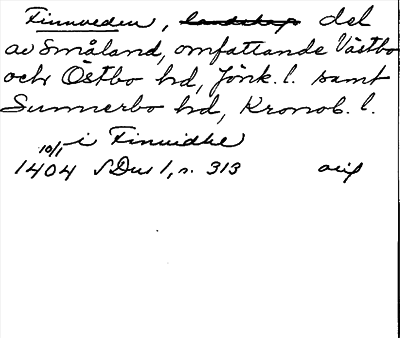 Finnveden, landskap del
av Småland, omfattande Västbo
och Östbo hd, Jönk. l. samt
Sunnerbo hd, Kronob. l.
10/1 i Finnidhe
1404 SDns 1, n. 313 avs